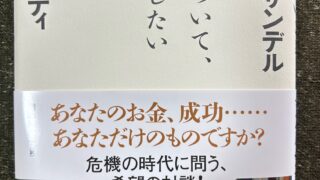 サンデル
ついて、
したい
ティ
あなたのお金、成功……
あなただけのものですか?
危機の時代に問う、
希望の対談!